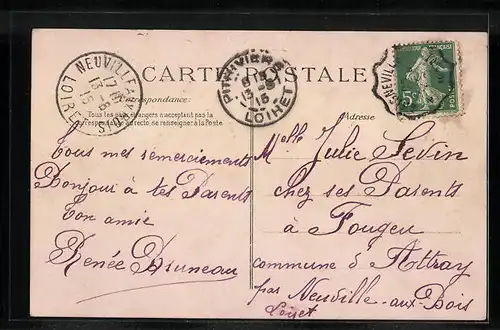 CARTE POSTALE
Correspondance:
Tous les pays étrangers n'acceptent pas la
Correspondance au recto, se renseigner à la Poste
Adresse
NEUVILLE-AUX-BOIS
LOIRET
PITHIVIERS
LOIRET
5c
Tous mes remerciements
Bonjour à tes Parents
Ton amie
Renée Bruneau
Melle Julie Sevin
chez ses Parents
à Fougeu
commune d'Attray
par Neuville-aux-Bois
Loiret